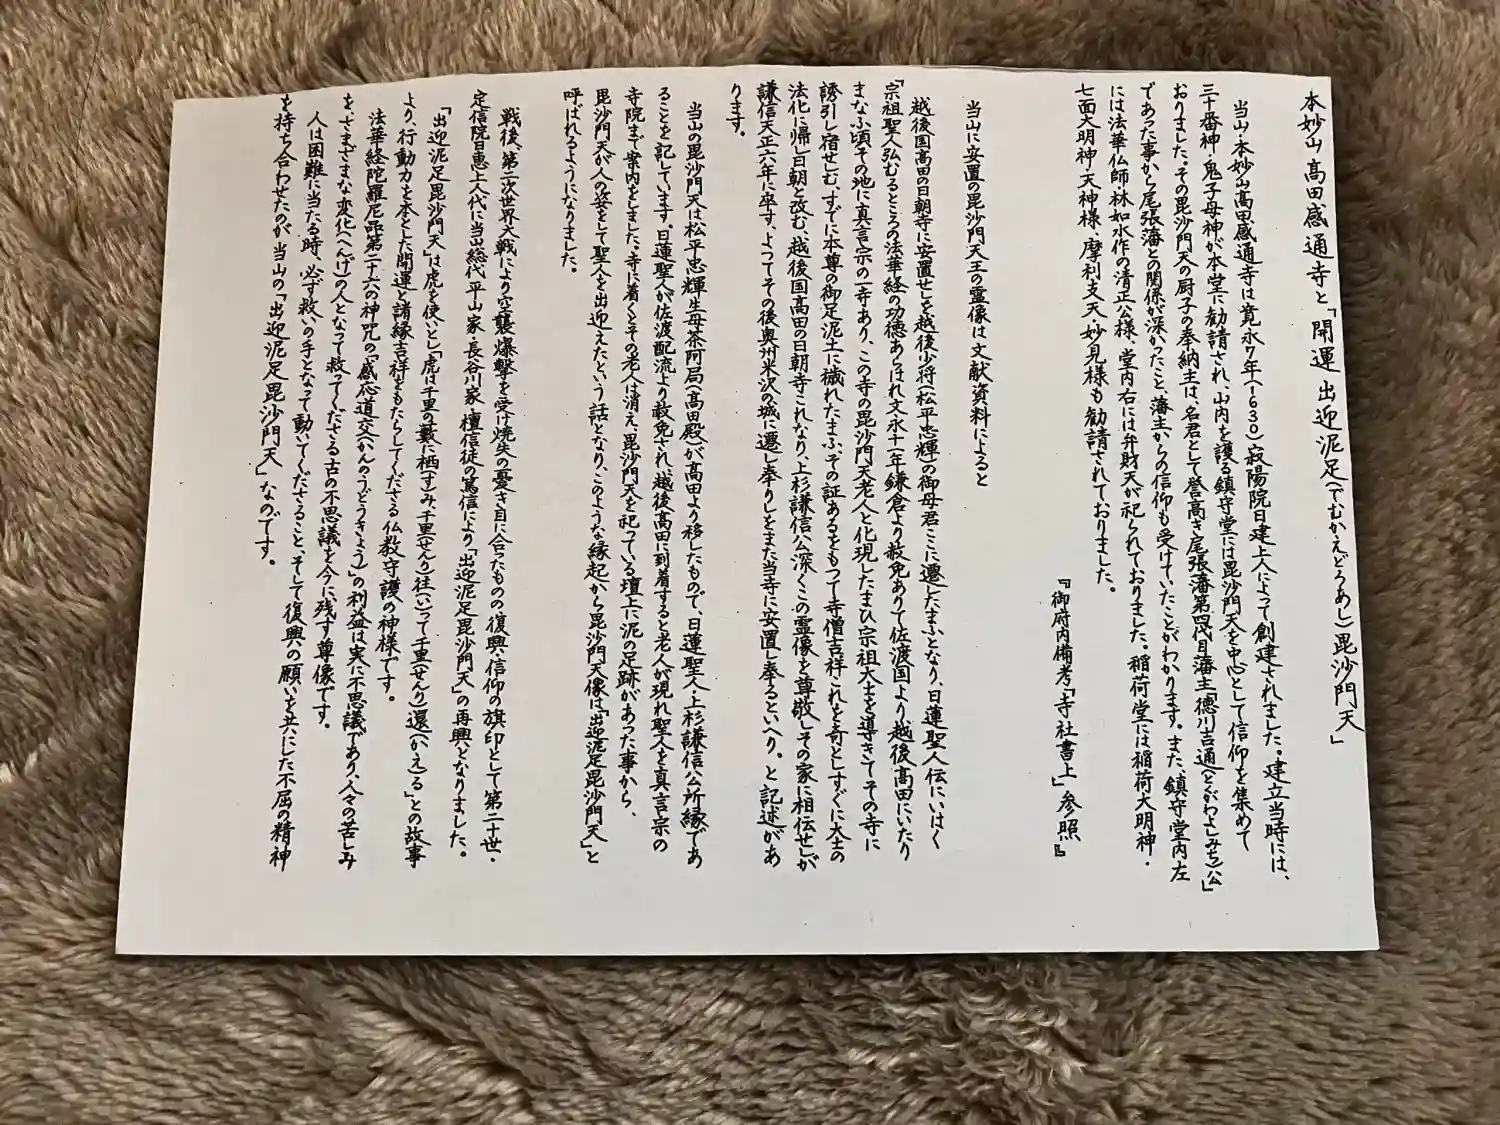 本妙山高田感通寺と「開運 出迎泥足(でむかえどろあし)毘沙門天」
当山・本妙山高田感通寺は寛永7年(1630)寂陽院日建上人によって創建されました。建立当時には、
三十番神・鬼子母神が本堂に勧請され、山内を護る鎮守堂には毘沙門天を中心として信仰を集めて
おりました。その毘沙門天の厨子の奉納主は、名君として誉高き尾張藩第四代目藩主「徳川吉通(とくがわよしみち)公」
であった事から尾張藩との関係が深かったこと、藩主からの信仰も受けていたことがわかります。また、鎮守堂内左
には法華仏師・林如水作の清正公様、堂内右には弁財天が祀られておりました。稲荷堂には稲荷大明神・
七面大明神・天神様・摩利支天・妙見様も勧請されておりました。
『御府内備考「寺社書上」参照』
当山に安置の毘沙門天王の霊像は文献資料によると
越後国高田の日朝寺に安置せしを越後少将(松平忠輝)の御母君ここに遷したまふとなり、日蓮聖人伝にいはく
「宗祖聖人弘むるところの法華経の功徳あらはれ文永十一年鎌倉より赦免ありて佐渡国より越後高田にいたり
まなふ頃その地に真言宗の一寺あり、この寺の毘沙門天老人と化現したまひ宗祖大士を導きてその寺に
誘引し宿せむ、すでに本尊の御足泥土に穢れたまふ、その証あるをもつて寺僧吉祥、これを奇としすぐに大士の
法化に帰し日朝と改む、越後国高田の日朝寺これなり、上杉謙信公深くこの霊像を尊敬しその家に相伝せしが
謙信天正六年に卒す、よつてその後奥州米沢の城に遷し奉りしをまた当寺に安置し奉るといへり。と記述があ
ります。
当山の毘沙門天は松平忠輝生母茶阿局(高田殿)が高田より移したもので、日蓮聖人・上杉謙信公所縁であ
ることを記しています。日蓮聖人が佐渡配流より赦免され、越後高田に到着すると老人が現れ聖人を真言宗の
寺院まで案内をしました。寺に着くとその老人は消え、毘沙門天を祀っている壇上に泥の足跡があった事から、
毘沙門天が人の姿をして聖人を出迎えたという話となり、このような縁起から毘沙門天像は「出迎泥足毘沙門天」と
呼ばれるようになりました。
戦後、第二次世界大戦により空襲爆撃を受け焼失の憂き目に合ったものの復興、信仰の旗印として第二十世・
定信院日恵上人代に当山総代平山家・長谷川家、檀信徒の篤信により「出迎泥足毘沙門天」の再興となりました。
「出迎泥足毘沙門天」は虎を使いとし「虎は千里の藪に栖(す)み、千里(せんり)往(い)って千里(せんり)還(かえ)る」との故事
より、行動力を本とした開運と諸縁吉祥をもたらしてくださる仏教守護の神様です。
法華経陀羅尼品第二十六の神咒の「感応道交(かんのうどうきょう)」の利益は実に不思議であり、人々の苦しみ
を、さまざまな変化(へんげ)の人となって救ってくださる古の不思議を今に残す尊像です。
人は困難に当たる時、必ず救いの手となって動いてくださること、そして復興の願いを共にした不屈の精神
を持ち合わせたのが当山の「出迎泥足毘沙門天」なのです。